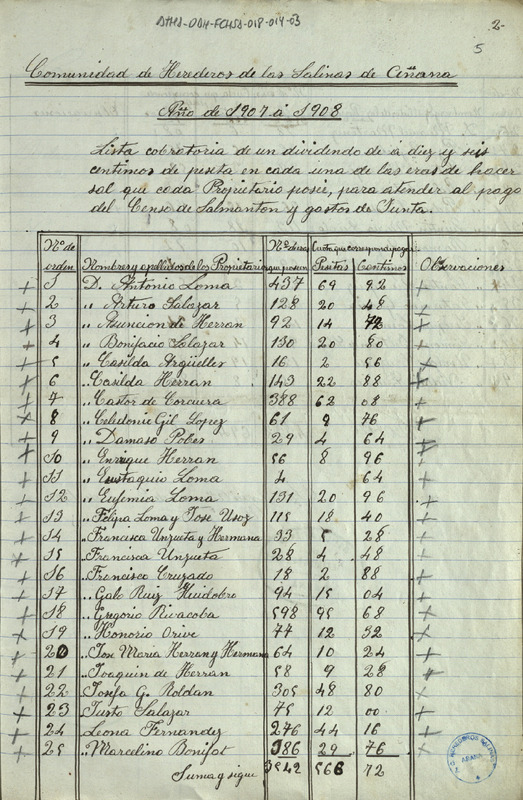 AHHS-ODH-FCHSA-018-014-03
2-
5
Comunidad de Herederos de las Salinas de Añana
Año de 1907 á 1908
Lista cobratoria de un dividendo de á diez y seis
centimos de peseta en cada una de las eras de hacer
sal que cada Propietario poseé, para atender al pago
del Censo de Salmanton y gastos de Junta.
Nº de orden Nombres y apellidos de los Propietarios Nº de eras que poseen Cuota que corresponde pagar Pesetas Centimos Observaciones
+ 1 D. Antonio Loma 437 69 92 +
+ 2 „ Arturo Salazar 128 20 48 +
+ 3 „ Asuncion de Herran 92 14 72 +
+ 4 „ Bonifacio Salazar 130 20 80 +
+ 5 „ Casilda Argüelles 16 2 56 +
+ 6 „ Casilda Herran 143 22 88 +
+ 7 „ Castor de Corcuera 388 62 08 +
+ 8 „ Celedonio Gil Lopez 61 9 76 +
+ 9 „ Damaso Pobes 29 4 64 +
+ 10 „ Enrique Herran 56 8 96 +
+ 11 „ Eustaquio Loma 4 64 +
+ 12 „ Eufemia Loma 131 20 96 +
+ 13 „ Felipa Loma y Jose Usoz 115 18 40 +
+ 14 „ Francisca Unzueta y Hermana 33 5 28 +
+ 15 „ Francisca Unzueta 28 4 48 +
+ 16 „ Francisco Cruzado 18 2 88 +
+ 17 „ Galo Ruiz Huidobro 94 15 04 +
+ 18 „ Gregorio Rivacoba 598 95 68 +
+ 19 „ Honorio Orive 77 12 32 +
+ 20 „ Jose Maria Herran y Hermana 64 10 24 +
+ 21 „ Joaquin de Herran 58 9 28 +
+ 22 „ Josefa G. Roldan 305 48 80 +
+ 23 „ Justo Salazar 75 12 00 +
+ 24 „ Leona Fernandez 276 44 16 +
+ 25 „ Marcelino Bonifot 186 29 76 +
Suma y sigue 3542 566 72
AÑANA